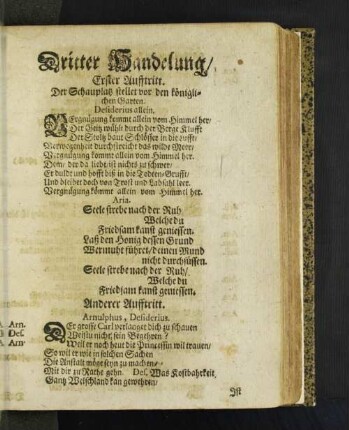 Dritter Handelung/
Erster Aufftritt.
Der Schauplatz stellet vor den königli-
chen Garten.
Desiderius allein.
Vergnügung kommt allein vom Himmel her/
Der Geitz wühlt durch der Berge Klufft
Der Stoltz baut Schlösser in die Lufft/
Verwegenheit durchstreicht das wilde Meer/
Vergnügung kommt allein vom Himmel her.
Dem/ der da liebt/ ist nichts zu schwer/
Er duldt und hofft biß in die Todten-Grufft/
Und bleibet doch von Trost und Labsahl leer.
Vergnügung kömmt allein vom Himmel her.
Aria.
Seele strebe nach der Ruh
Welche du
Friedsam kanst geniessen.
Laß den Honig dessen Grund
Wermuht führet/ deinen Mund
nicht durchsüssen.
Seele strebe nach der Ruh/
Welche du
Friedsam kanst geniessen.
Anderer Aufftritt.
Arnulphus, Desiderius.
Der grosse Carl verlanget dich zu schauen
Weistu nicht sein Begehren?
Weil er noch heut die Printzessin wil trauen/
So wil er wie in solchen Sachen
Die Anstalt möge seyn zu machen/
Mit dir zu Rathe gehn. Des. Was Kostbahrkeit
Gantz Welschland kan gewehren/
Ist
Arn.
Des.
Arn.